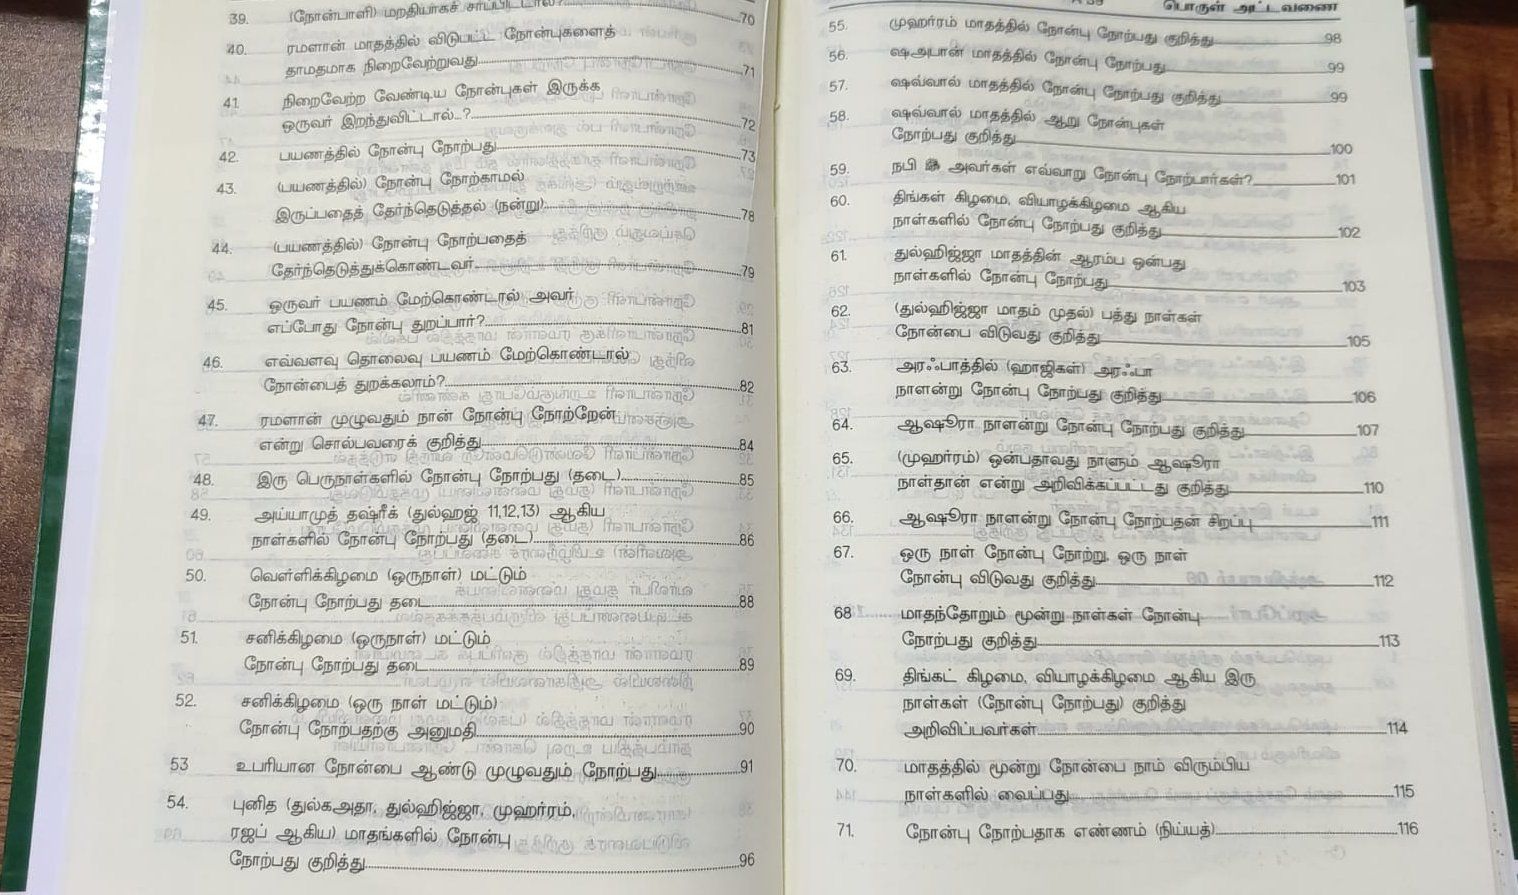 39. (நோன்பாளி) மறதியாகச் சாப்பிட்டால்? 70
40. ரமளான் மாதத்தில் விடுபட்ட நோன்புகளைத்
தாமதமாக நிறைவேற்றுவது 71
41 நிறைவேற்ற வேண்டிய நோன்புகள் இருக்க
ஒருவர் இறந்துவிட்டால்..? 72
42. பயணத்தில் நோன்பு நோற்பது 73
43. (பயணத்தில்) நோன்பு நோற்காமல்
இருப்பதைத் தேர்ந்தெடுத்தல் (நன்று) 78
44. (பயணத்தில்) நோன்பு நோற்பதைத்
தேர்ந்தெடுத்துக்கொண்டவர் 79
45. ஒருவர் பயணம் மேற்கொண்டால் அவர்
எப்போது நோன்பு துறப்பார்? 81
46. எவ்வளவு தொலைவு பயணம் மேற்கொண்டால்
நோன்பைத் துறக்கலாம்? 82
47. ரமளான் முழுவதும் நான் நோன்பு நோற்றேன்
என்று சொல்பவரைக் குறித்து 84
48. இரு பெருநாள்களில் நோன்பு நோற்பது (தடை) 85
49. அய்யாமுத் தஷ்ரீக் (துல்ஹஜ் 11,12,13) ஆகிய
நாள்களில் நோன்பு நோற்பது (தடை) 86
50. வெள்ளிக்கிழமை (ஒருநாள்) மட்டும்
நோன்பு நோற்பது தடை 88
51. சனிக்கிழமை (ஒருநாள்) மட்டும்
நோன்பு நோற்பது தடை 89
52. சனிக்கிழமை (ஒரு நாள் மட்டும்)
நோன்பு நோற்பதற்கு அனுமதி 90
53 உபரியான நோன்பை ஆண்டு முழுவதும் நோற்பது 91
54. புனித (துல்கஅதா, துல்ஹிஜ்ஜா, முஹர்ரம்,
ரஜப் ஆகிய) மாதங்களில் நோன்பு
நோற்பது குறித்து 96
பொருள் அட்டவணை
55. முஹர்ரம் மாதத்தில் நோன்பு நோற்பது குறித்து 98
56. ஷஅபான் மாதத்தில் நோன்பு நோற்பது 99
57. ஷவ்வால் மாதத்தில் நோன்பு நோற்பது குறித்து 99
58. ஷவ்வால் மாதத்தில் ஆறு நோன்புகள்
நோற்பது குறித்து 100
59. நபி ﷺ அவர்கள் எவ்வாறு நோன்பு நோற்பார்கள்? 101
60. திங்கள் கிழமை, வியாழக்கிழமை ஆகிய
நாள்களில் நோன்பு நோற்பது குறித்து 102
61. துல்ஹிஜ்ஜா மாதத்தின் ஆரம்ப ஒன்பது
நாள்களில் நோன்பு நோற்பது 103
62. (துல்ஹிஜ்ஜா மாதம் முதல்) பத்து நாள்கள்
நோன்பை விடுவது குறித்து 105
63. அரஃபாத்தில் (ஹாஜிகள்) அரஃபா
நாளன்று நோன்பு நோற்பது குறித்து 106
64. ஆஷூரா நாளன்று நோன்பு நோற்பது குறித்து 107
65. (முஹர்ரம்) ஒன்பதாவது நாளும் ஆஷூரா
நாள்தான் என்று அறிவிக்கப்பட்டது குறித்து 110
66. ஆஷூரா நாளன்று நோன்பு நோற்பதன் சிறப்பு 111
67. ஒரு நாள் நோன்பு நோற்று, ஒரு நாள்
நோன்பு விடுவது குறித்து 112
68 மாதந்தோறும் மூன்று நாள்கள் நோன்பு
நோற்பது குறித்து 113
69. திங்கட் கிழமை, வியாழக்கிழமை ஆகிய இரு
நாள்கள் (நோன்பு நோற்பது) குறித்து
அறிவிப்பவர்கள் 114
70. மாதத்தில் மூன்று நோன்பை நாம் விரும்பிய
நாள்களில் வைப்பது 115
71. நோன்பு நோற்பதாக எண்ணம் (நிய்யத்) 116